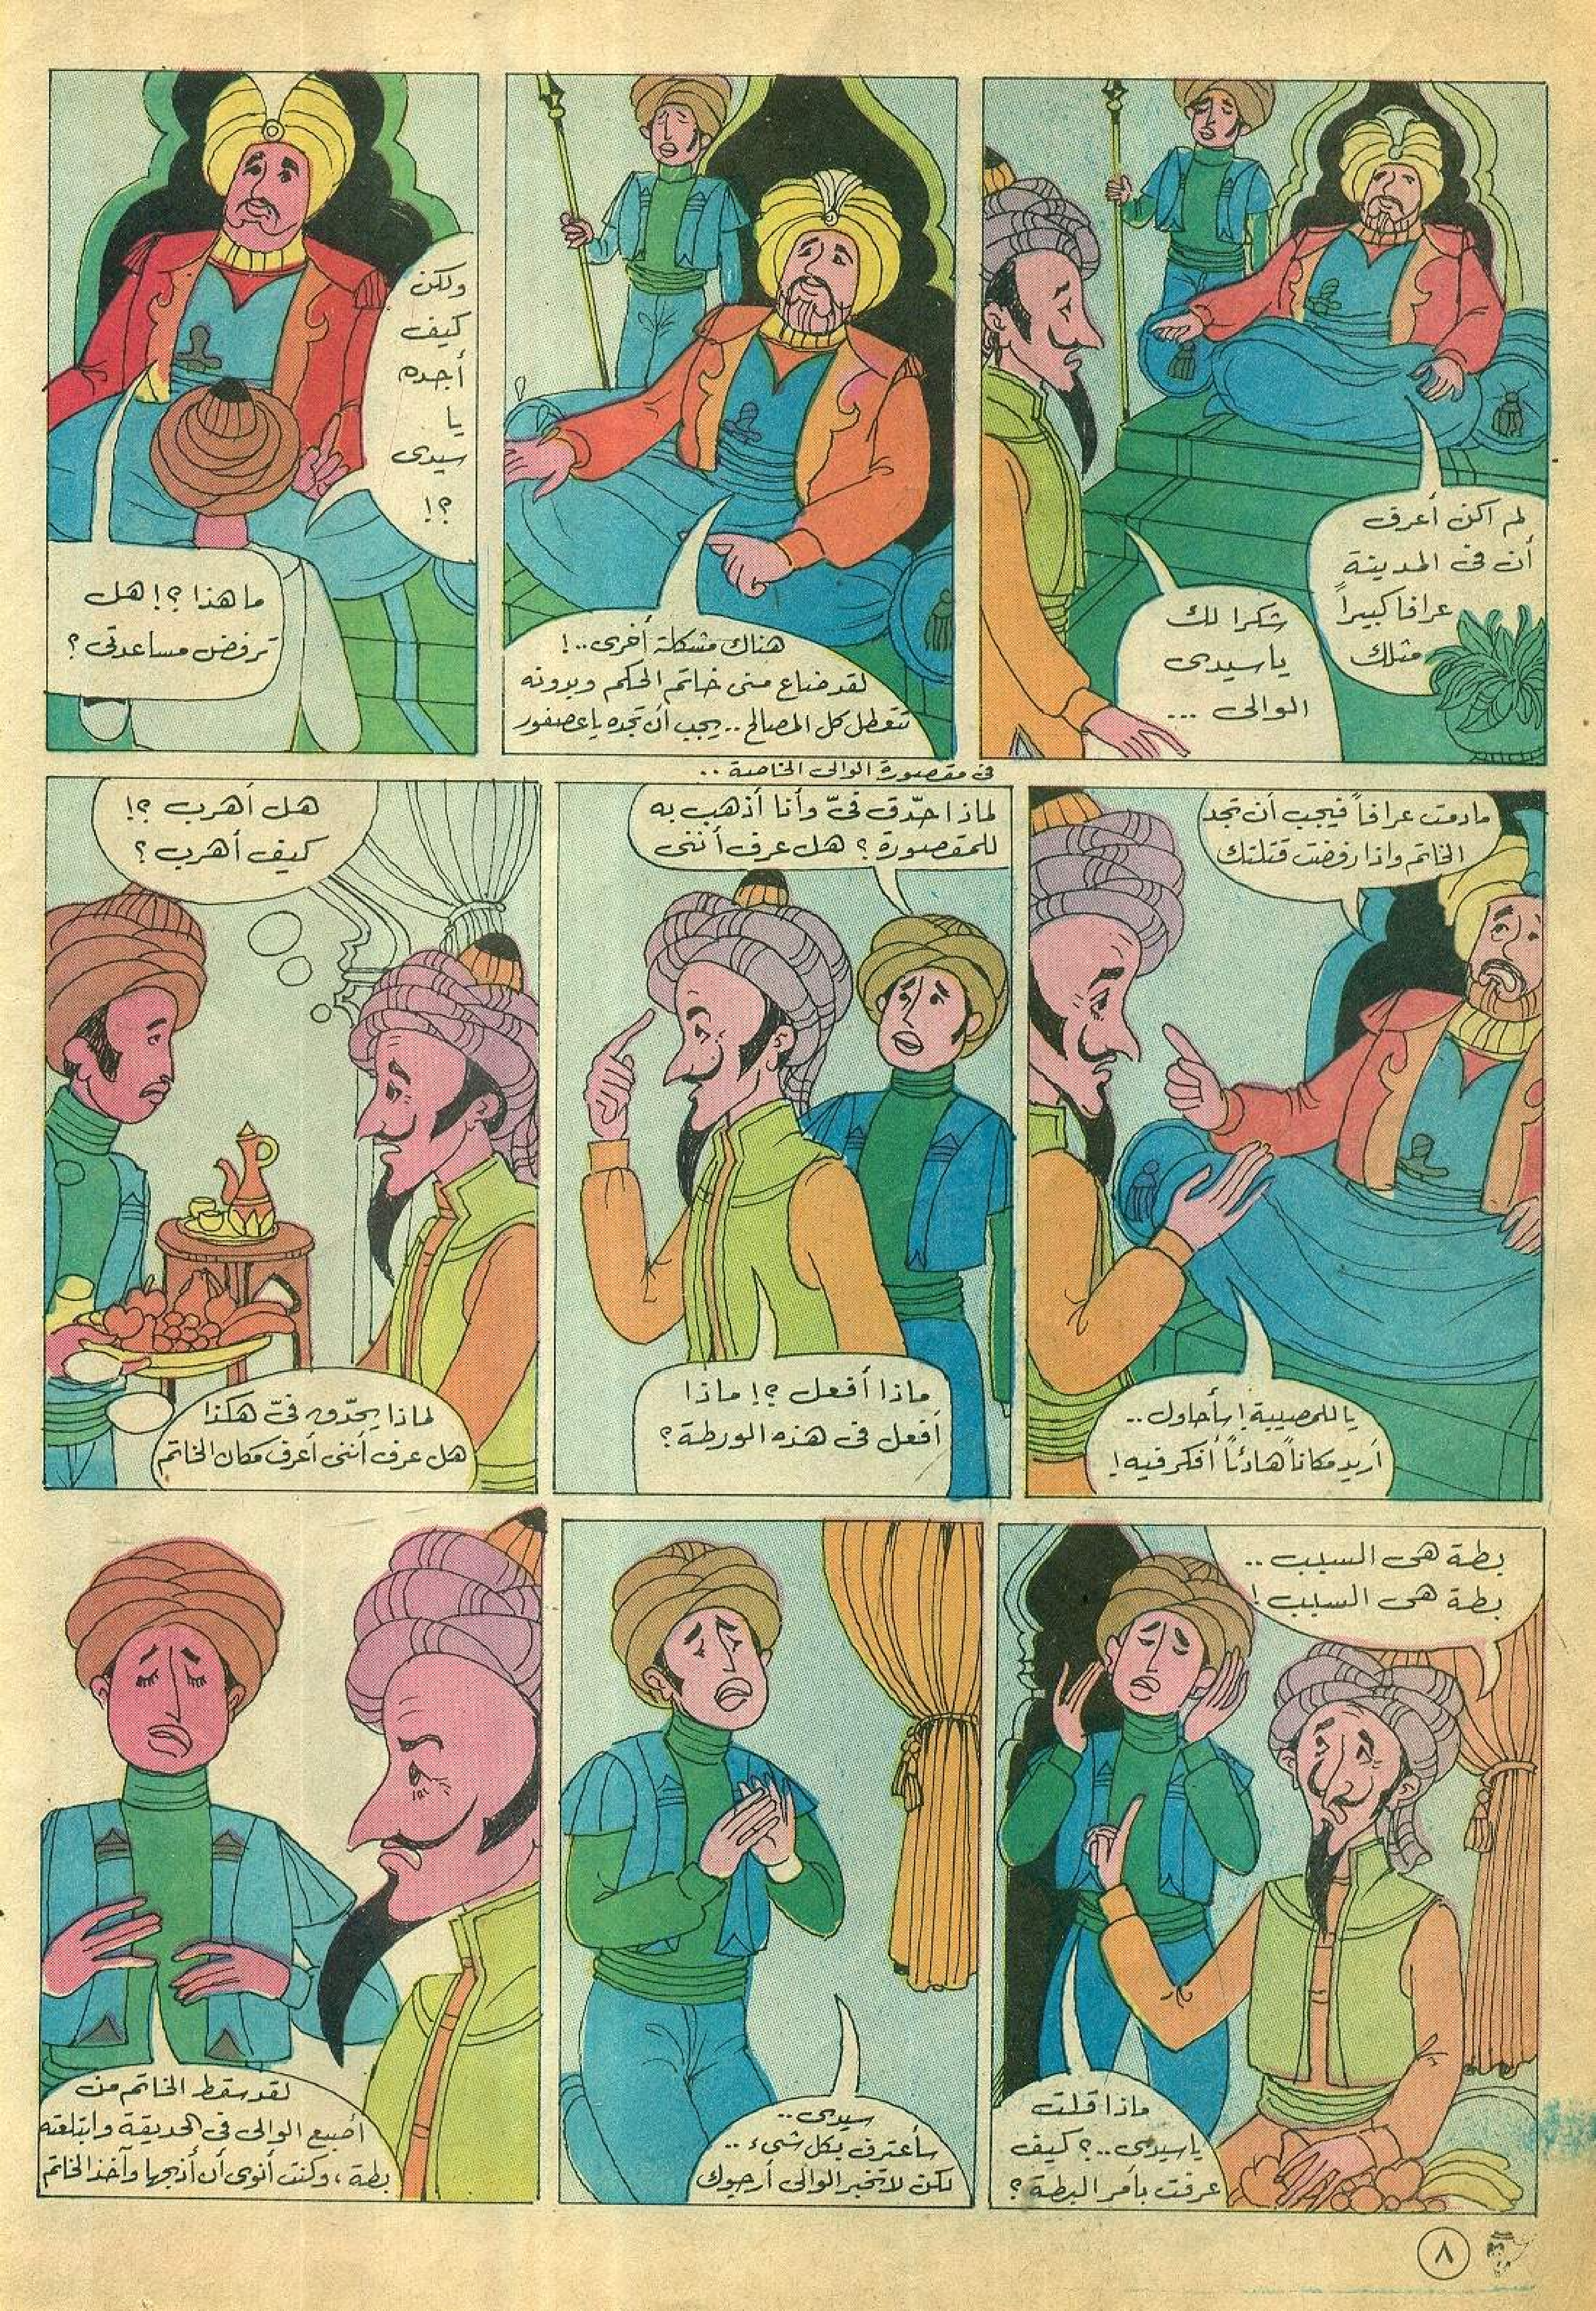 لم اكن أعرف
أن فى المدينة
عرافا كبيراً
مثلك
شكرا لك
ياسيدى
الوالى ...
هناك مشكلة أخرى..!
لقد ضاع منى خاتم الحكم وبدونه
تتعطل كل المصالح .. يجب أن تجده ياعصفور
ولكن
كيف
أجده
يا
سيدى
؟!
ما هذا ؟! هل
ترفض مساعدتى ؟
مادمت عرافاً فيجب أن تجد
الخاتم واذا رفضت قتلتك
ياللمصيبة ! سأحاول ..
أريد مكاناً هادئاً أفكر فيه !
فى مقصورة الوالى الخاصة ..
لماذا حدّق فىّ وأنا أذهب به
للمقصورة ؟ هل عرف أننى
ماذا أفعل ؟! ماذا
أفعل فى هذه الورطة ؟
هل أهرب ؟!
كيف أهرب ؟
لماذا يحدّق فىّ هكذا
هل عرف أننى أعرف مكان الخاتم
بطة هى السبب ..
بطة هى السبب !
ماذا قلت
ياسيدى ..؟ كيف
عرفت بأمر البطة ؟
سيدى ..
سأعترف بكل شىء ..
لكن لا تخبر الوالى أرجوك
لقد سقط الخاتم من
أصبع الوالى فى الحديقة وابتلعته
بطة ، وكنت أنوى أن أذبحها وآخذ الخاتم
٨